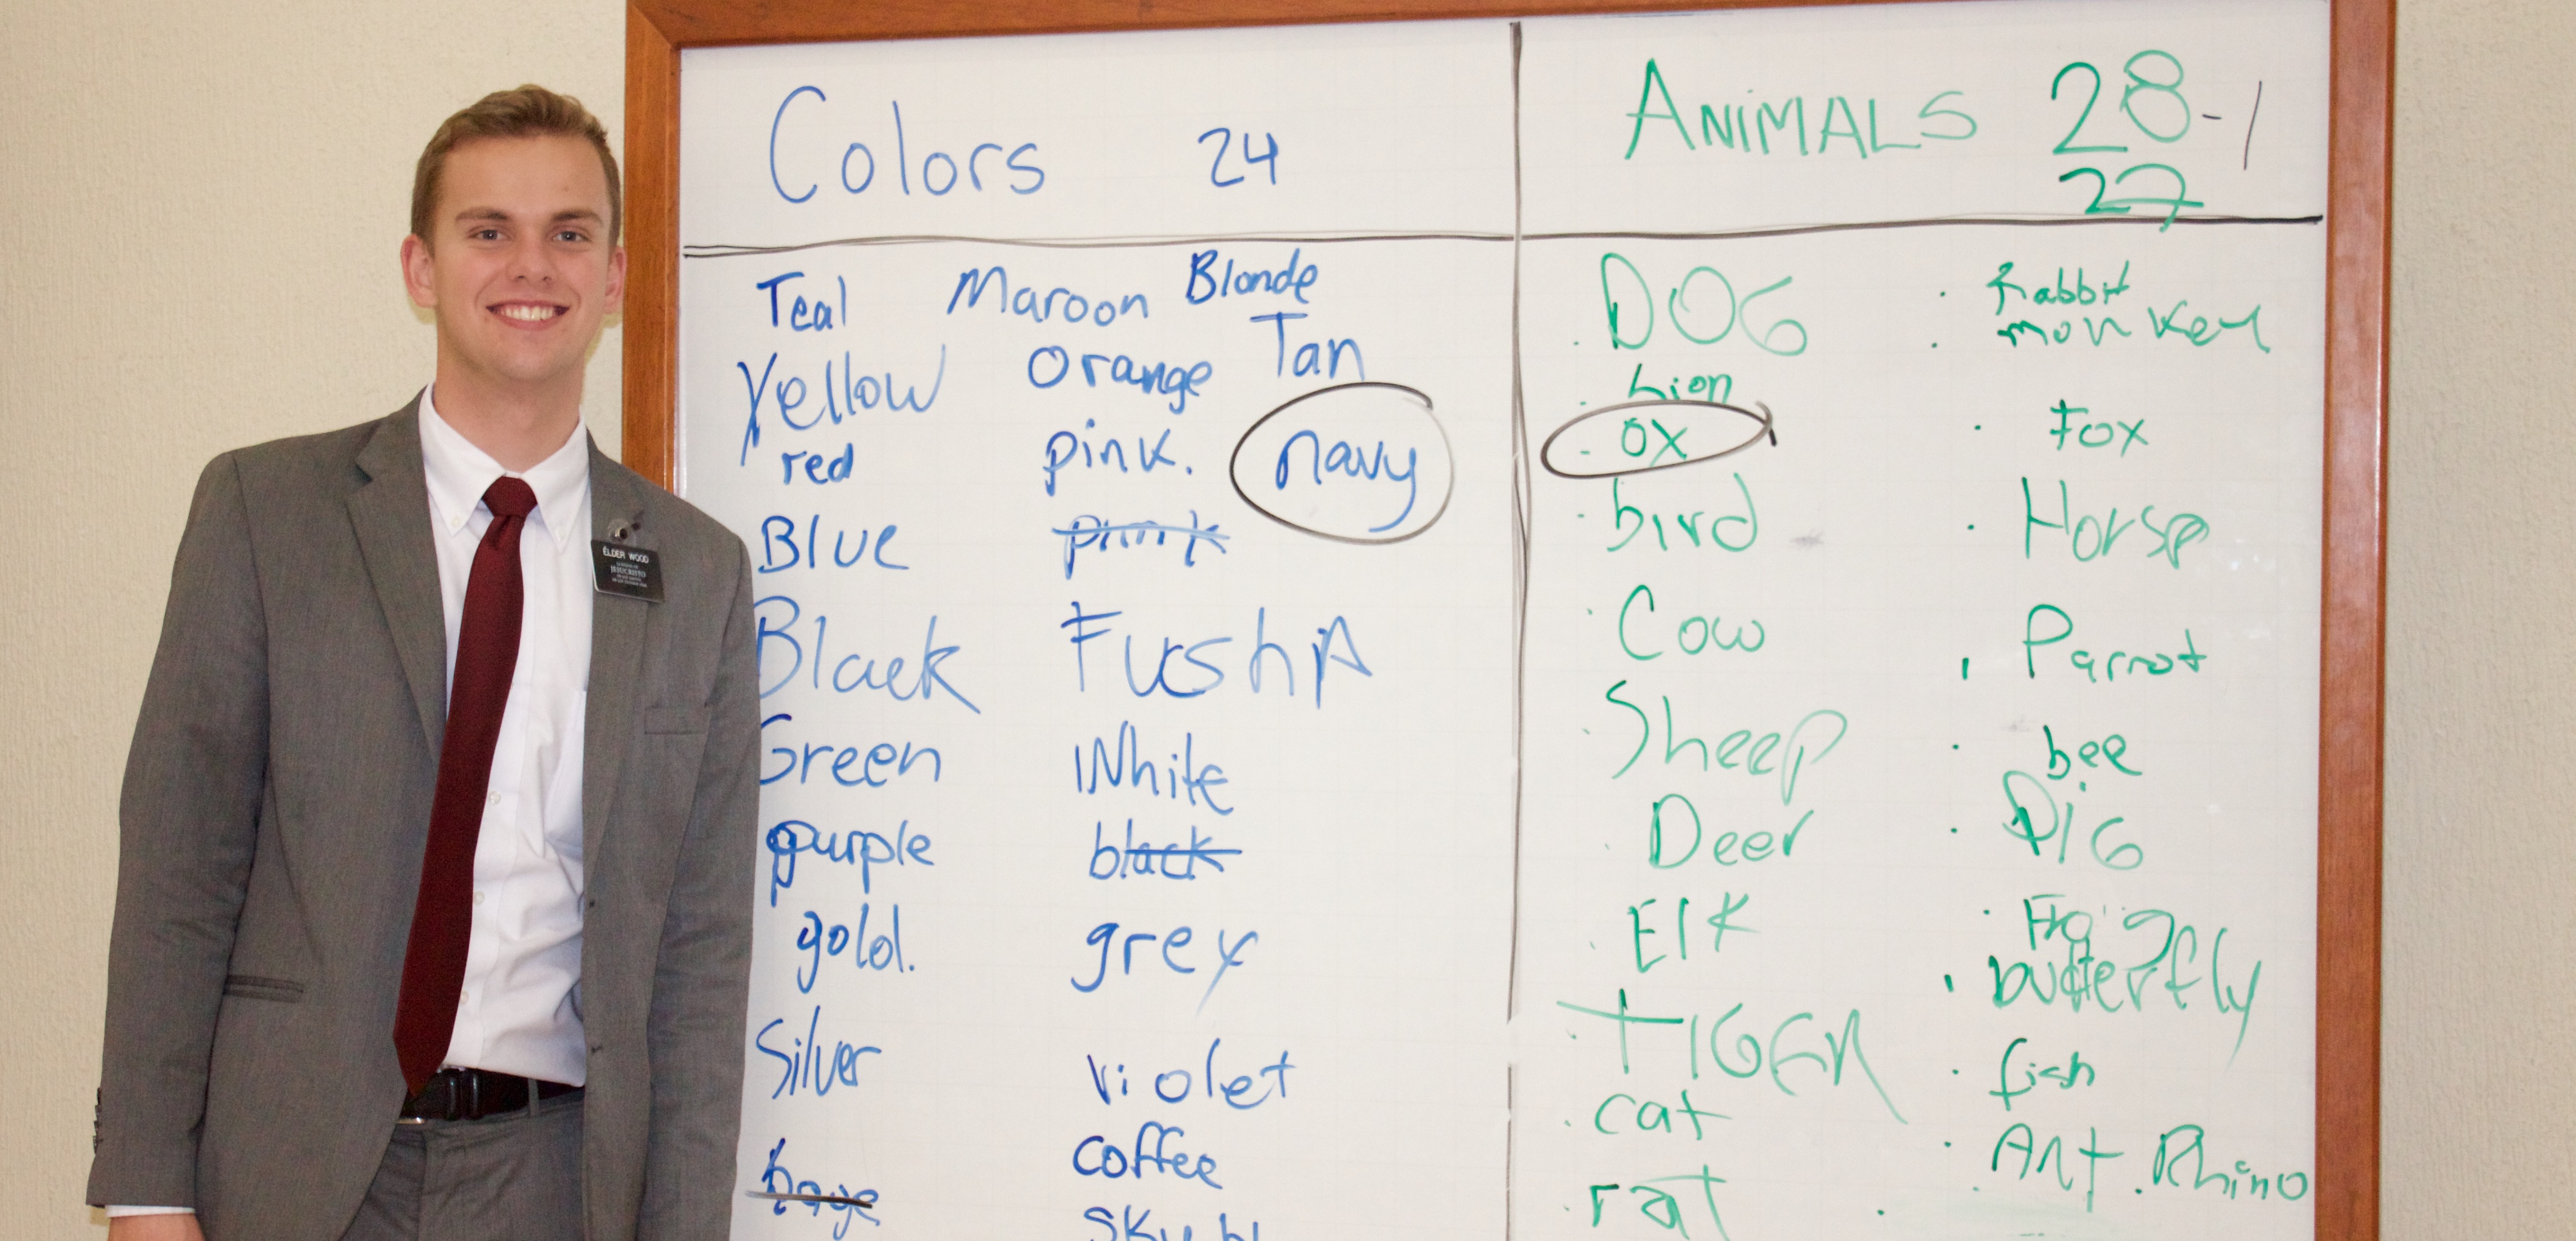 Colors 24
Teal Maroon Blonde
Yellow Orange Tan
red pink. navy
Blue
Black Fushia
Green White
purple black
gold. grey
Silver violet
coffee
ANIMALS 28-1
27
. DOG . Rabbit
. Lion . monkey
. OX . Fox
. bird . Horse
. Cow . Parrot
. Sheep . bee
. Deer . PIG
. Elk . Frog
. TIGER . butterfly
. cat . fish
. rat . Ant . Rhino
ELDER WOOD
JESUCRISTO